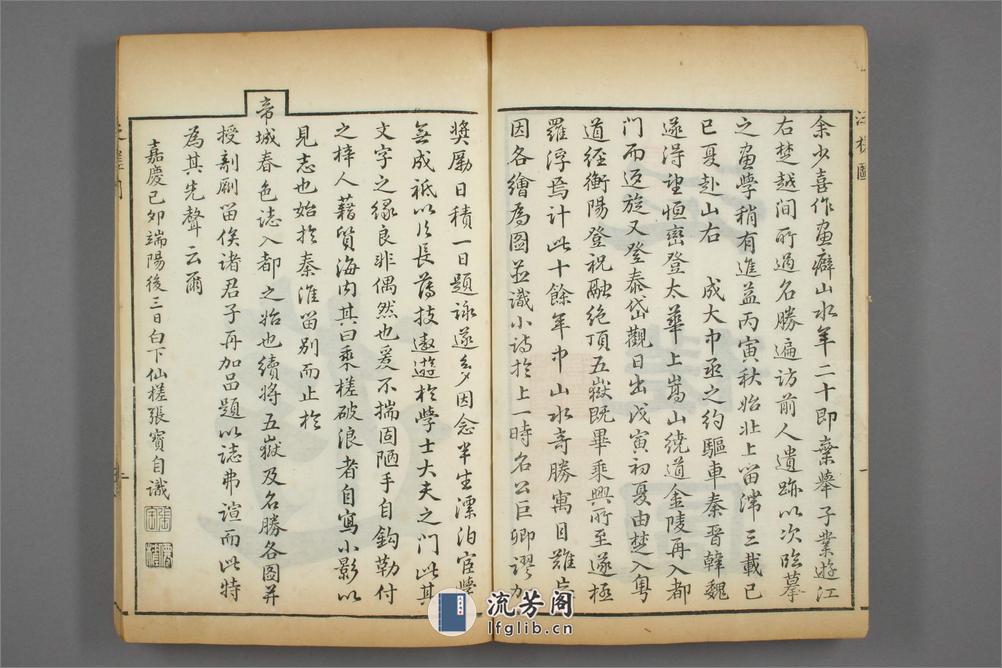 余少喜作畫癖山水年二十即棄舉子業遊江
右楚越間所過名勝遍訪前人遺跡以次臨摹
之畫學稍有進益丙寅秋始北上留滯三載己
巳夏赴山右 成大中丞之約驅車秦晉韓魏
遂得望恒密登太華上嵩山繞道金陵再入都
門而返旋又登泰岱觀日出戊寅初夏由楚入粵
道經衡陽登祝融絕頂五嶽既畢乘興所至遂極
羅浮焉計此十餘年中山水奇勝寓目難忘
因各繪為圖並識小詩於上一時名公巨卿謬加
獎勵日積一日題詠遂多因念半生漂泊宦學
無成祗以此長舊技遨遊於學士大夫之門此其
文字之緣良非偶然也爰不揣固陋手自鈎勒付
之梓人藉質海內其曰乘槎破浪者自寫小影以
見志也始於秦淮留別而止於
帝城春色誌入都之始也續將五嶽及名勝各圖并
授剞劂留俟諸君子再加品題以誌弗諼而此特
為其先聲云爾
嘉慶己卯端陽後三日白下仙槎張寶自識
流芳阁
lfglib.cn